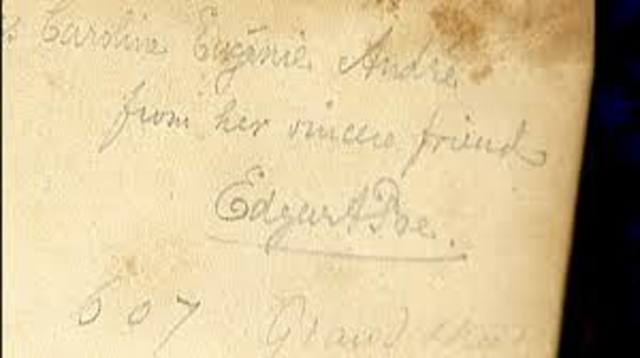 s Caroline Eugénie André
from her sincere friend
Edgar A Poe.
607 Grand